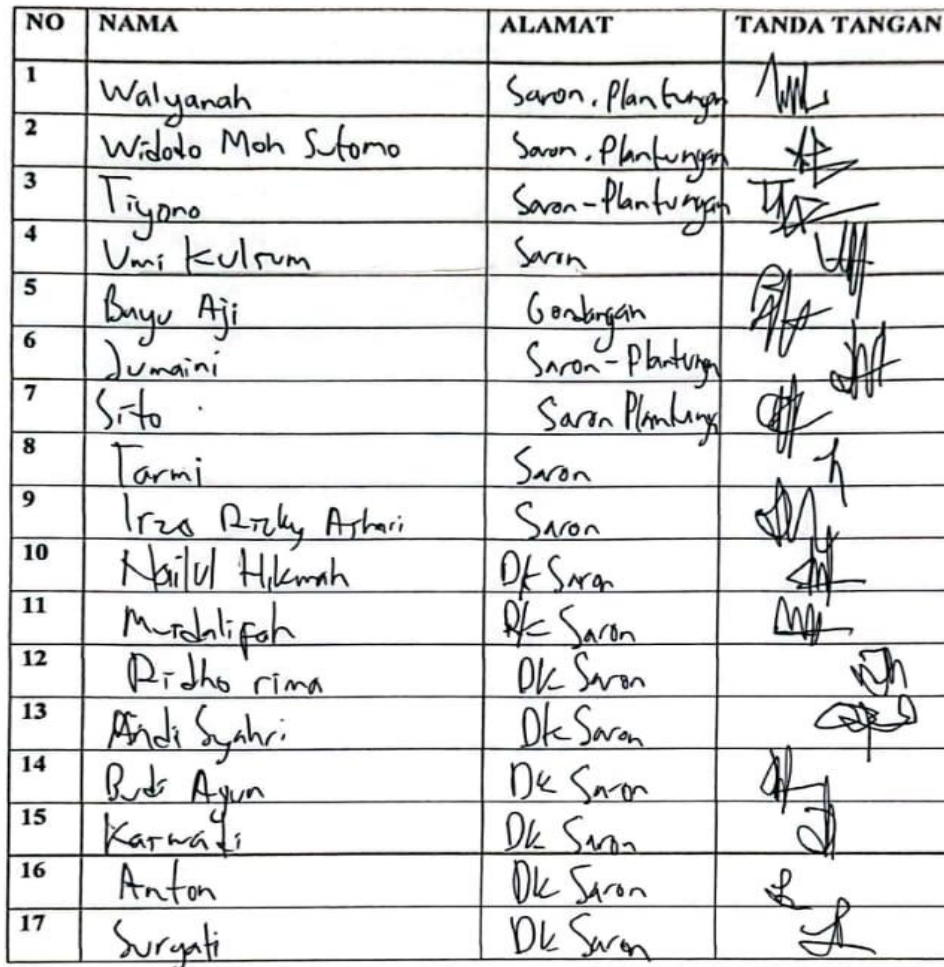 NO NAMA ALAMAT TANDA TANGAN
1 Walyanah Saron, Plantungan
2 Widodo Moh Sutomo Saron, Plantungan
3 Tiyono Saron-Plantungan
4 Umi Kulsum Saron
5 Bayu Aji Gondangan
6 Jumaini Saron-Plantungan
7 Sito Saron Plantung
8 Tarmi Saron
9 Rizky Ashari Saron
10 Nailul Hikmah Dk Saron
11 Murdalifah Dk Saron
12 Ridho rima Dk Saron
13 Andi Syahri Dk Saron
14 Budi Ayun Dk Saron
15 Karwati Dk Saron
16 Anton Dk Saron
17 Suryati Dk Saron